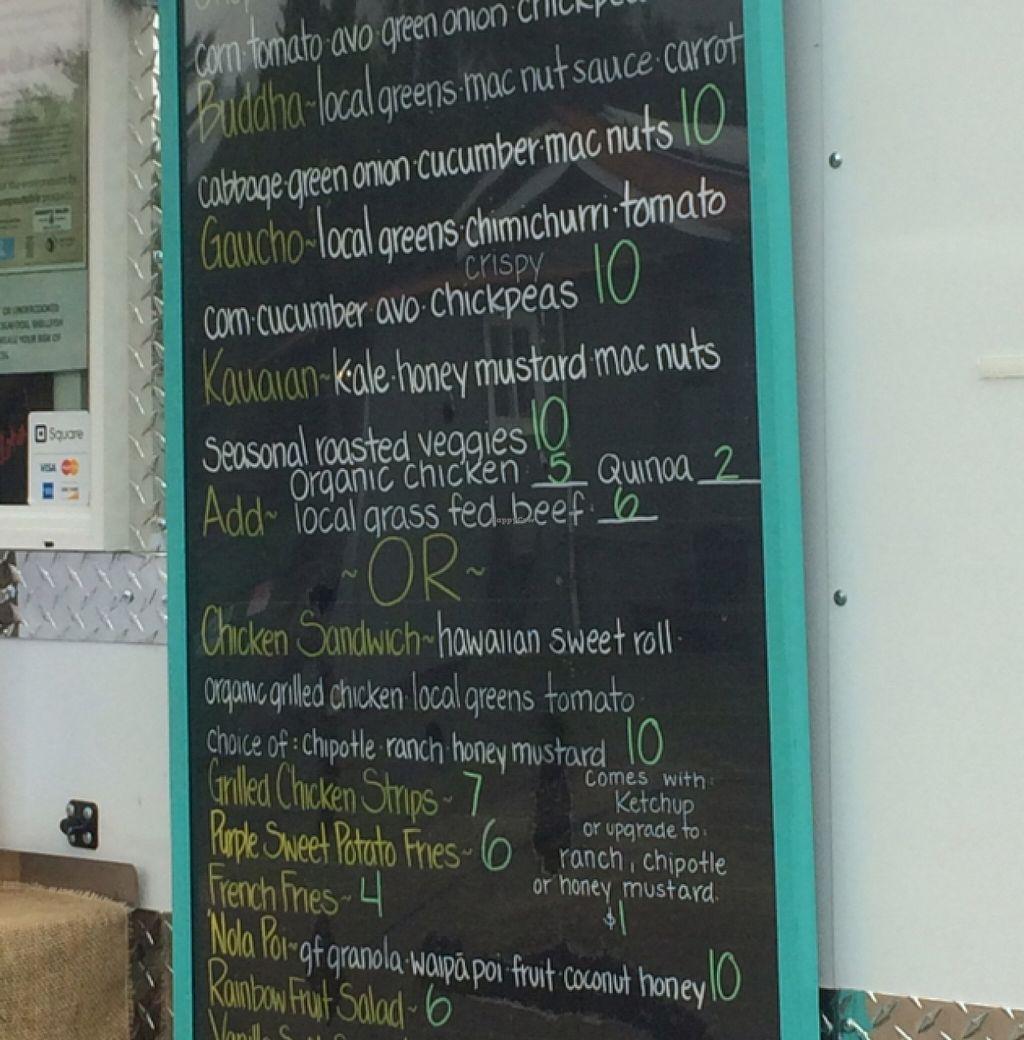 corn·tomato·avo·green onion
Buddha~local greens·mac nut sauce·carrot
cabbage·green onion·cucumber·mac nuts 10
Gaucho~local greens·chimichurri·tomato
crispy
corn·cucumber avo·chickpeas 10
Kauaian~kale·honey mustard·mac nuts
seasonal roasted veggies 10
organic chicken 5 Quinoa 2
Add~ local grass fed beef 6
~OR~
Chicken Sandwich~hawaiian sweet roll·
organic grilled chicken·local greens tomato·
choice of: chipotle·ranch·honey mustard 10
Grilled Chicken Strips~7
Purple Sweet Potato Fries~6
French Fries~4
Comes with:
Ketchup
or upgrade to:
ranch, chipotle
or honey mustard.
$1
'Nola Poi~gf granola·waipā poi·fruit·coconut honey 10
Rainbow Fruit Salad~6
Square
VISA